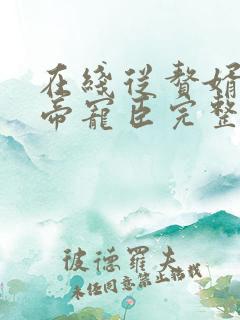 在线从赘婿
帝宠臣完整
彼德罗夫
未经同意禁止转载